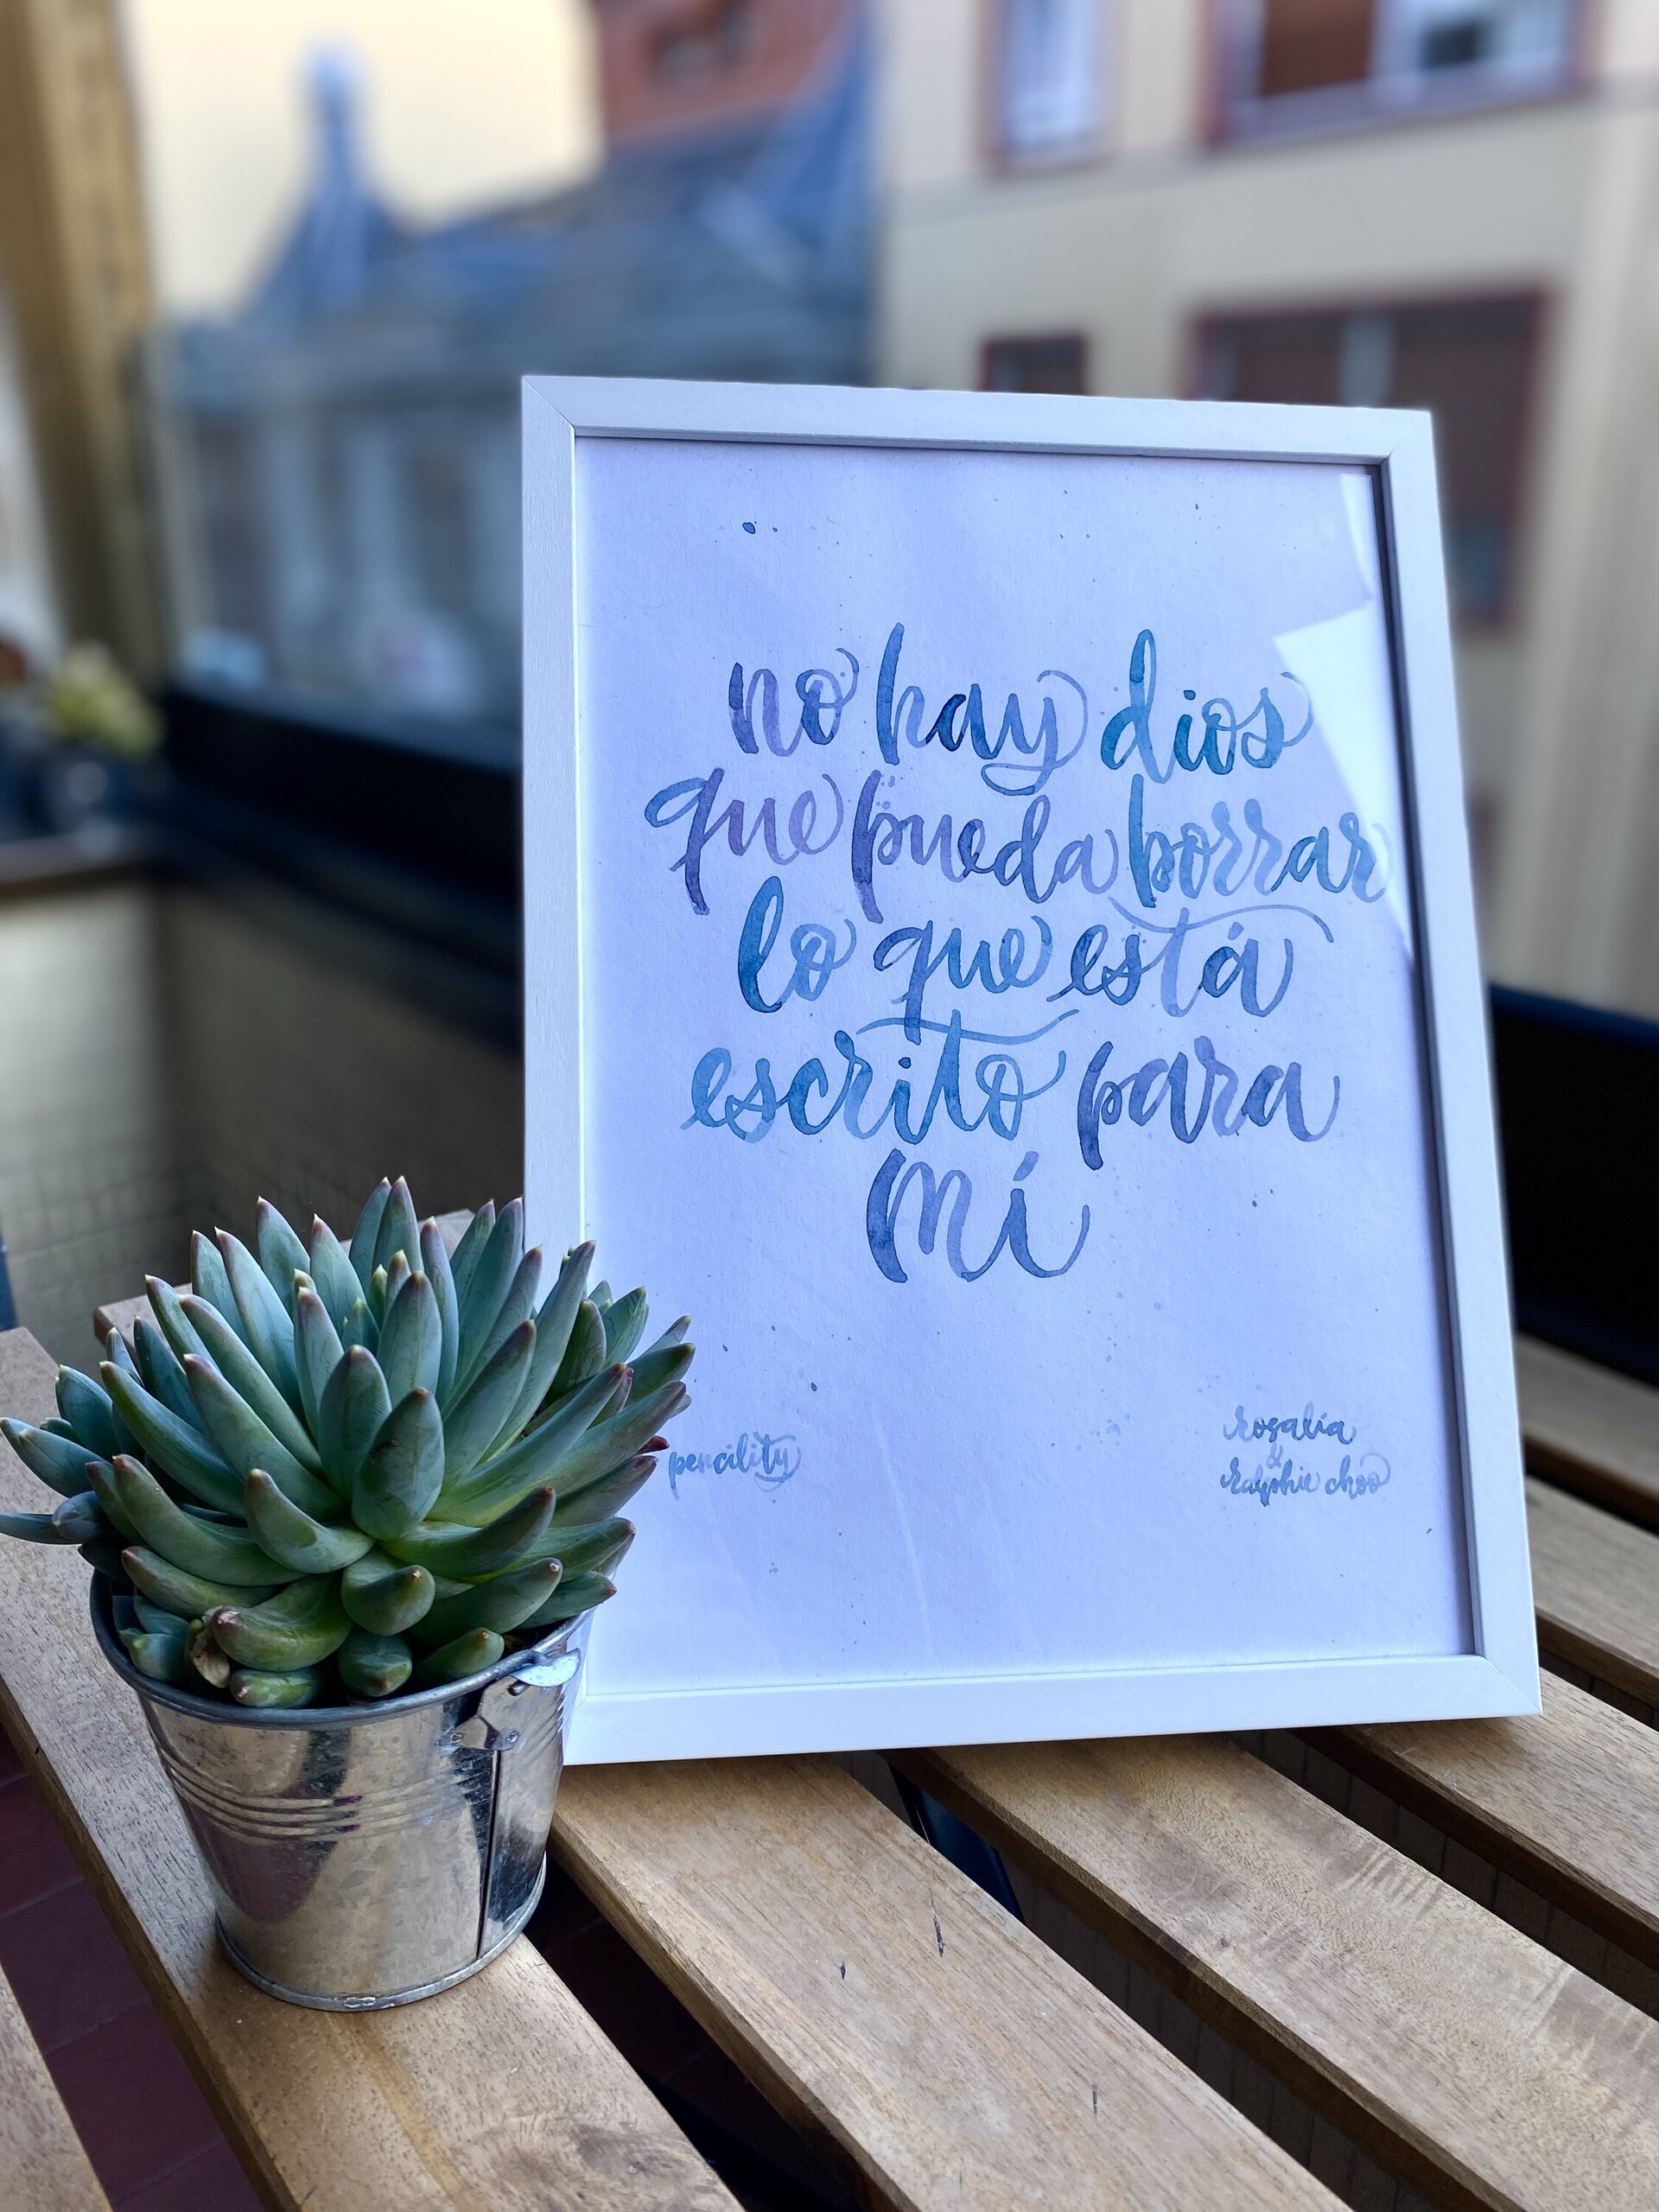 no hay dios
que pueda borrar
lo que está
escrito para
mí
pencility
rosalía
&
Ralphie choo